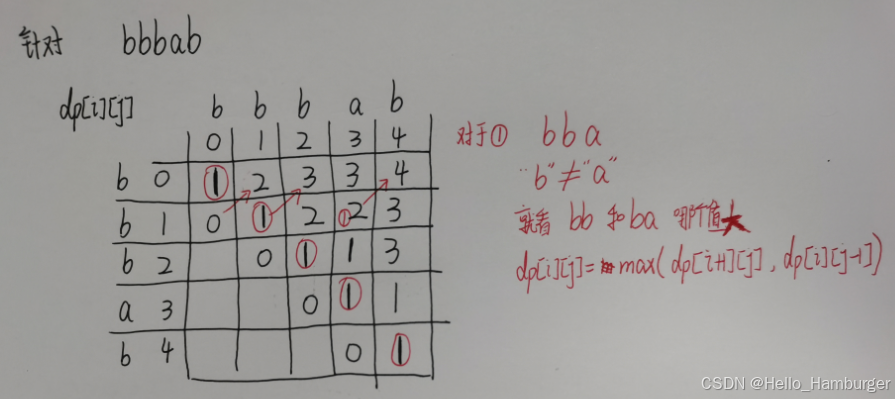 针对 bbbab
dp[i][j] b b b a b
0 1 2 3 4
b 0 1 2 3 3 4
b 1 0 1 2 ①2 3
b 2 0 1 1 3
a 3 0 1 1
b 4 0 1
对于① bba
"b"≠"a"
就看 bb 和 ba 哪个值大
dp[i][j]= max( dp[i+1][j] , dp[i][j-1])
CSDN @Hello_Hamburger